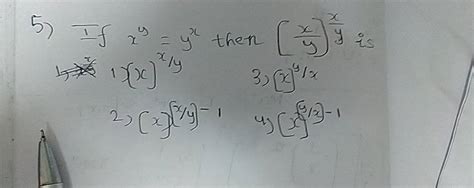 5) If x^y = y^x then [x/y]^{x/y} is
1) (x)^{x/y} 3) [x]^{y/x}
2) [x]^{[x/y]-1} 4) [x]^{[y/x]-1}